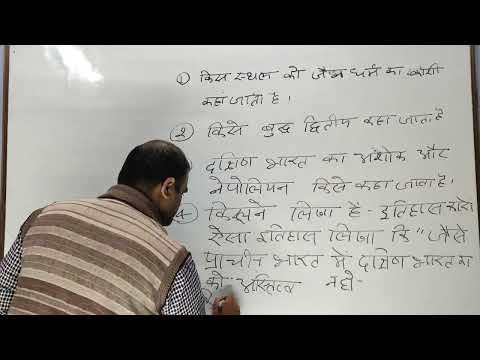 ① किस स्थल को जैन धर्म का काशी
कहा जाता है।
② किसे बुद्ध द्वितीय कहा जाता है
दक्षिण भारत का अशोक और
नेपोलियन किसे कहा जाता है।
4 किसने लिखा है - इतिहासकारों
ऐसा इतिहास लिखा कि "जैसे
प्राचीन भारत में दक्षिण भारत
को अस्तित्व न हो-